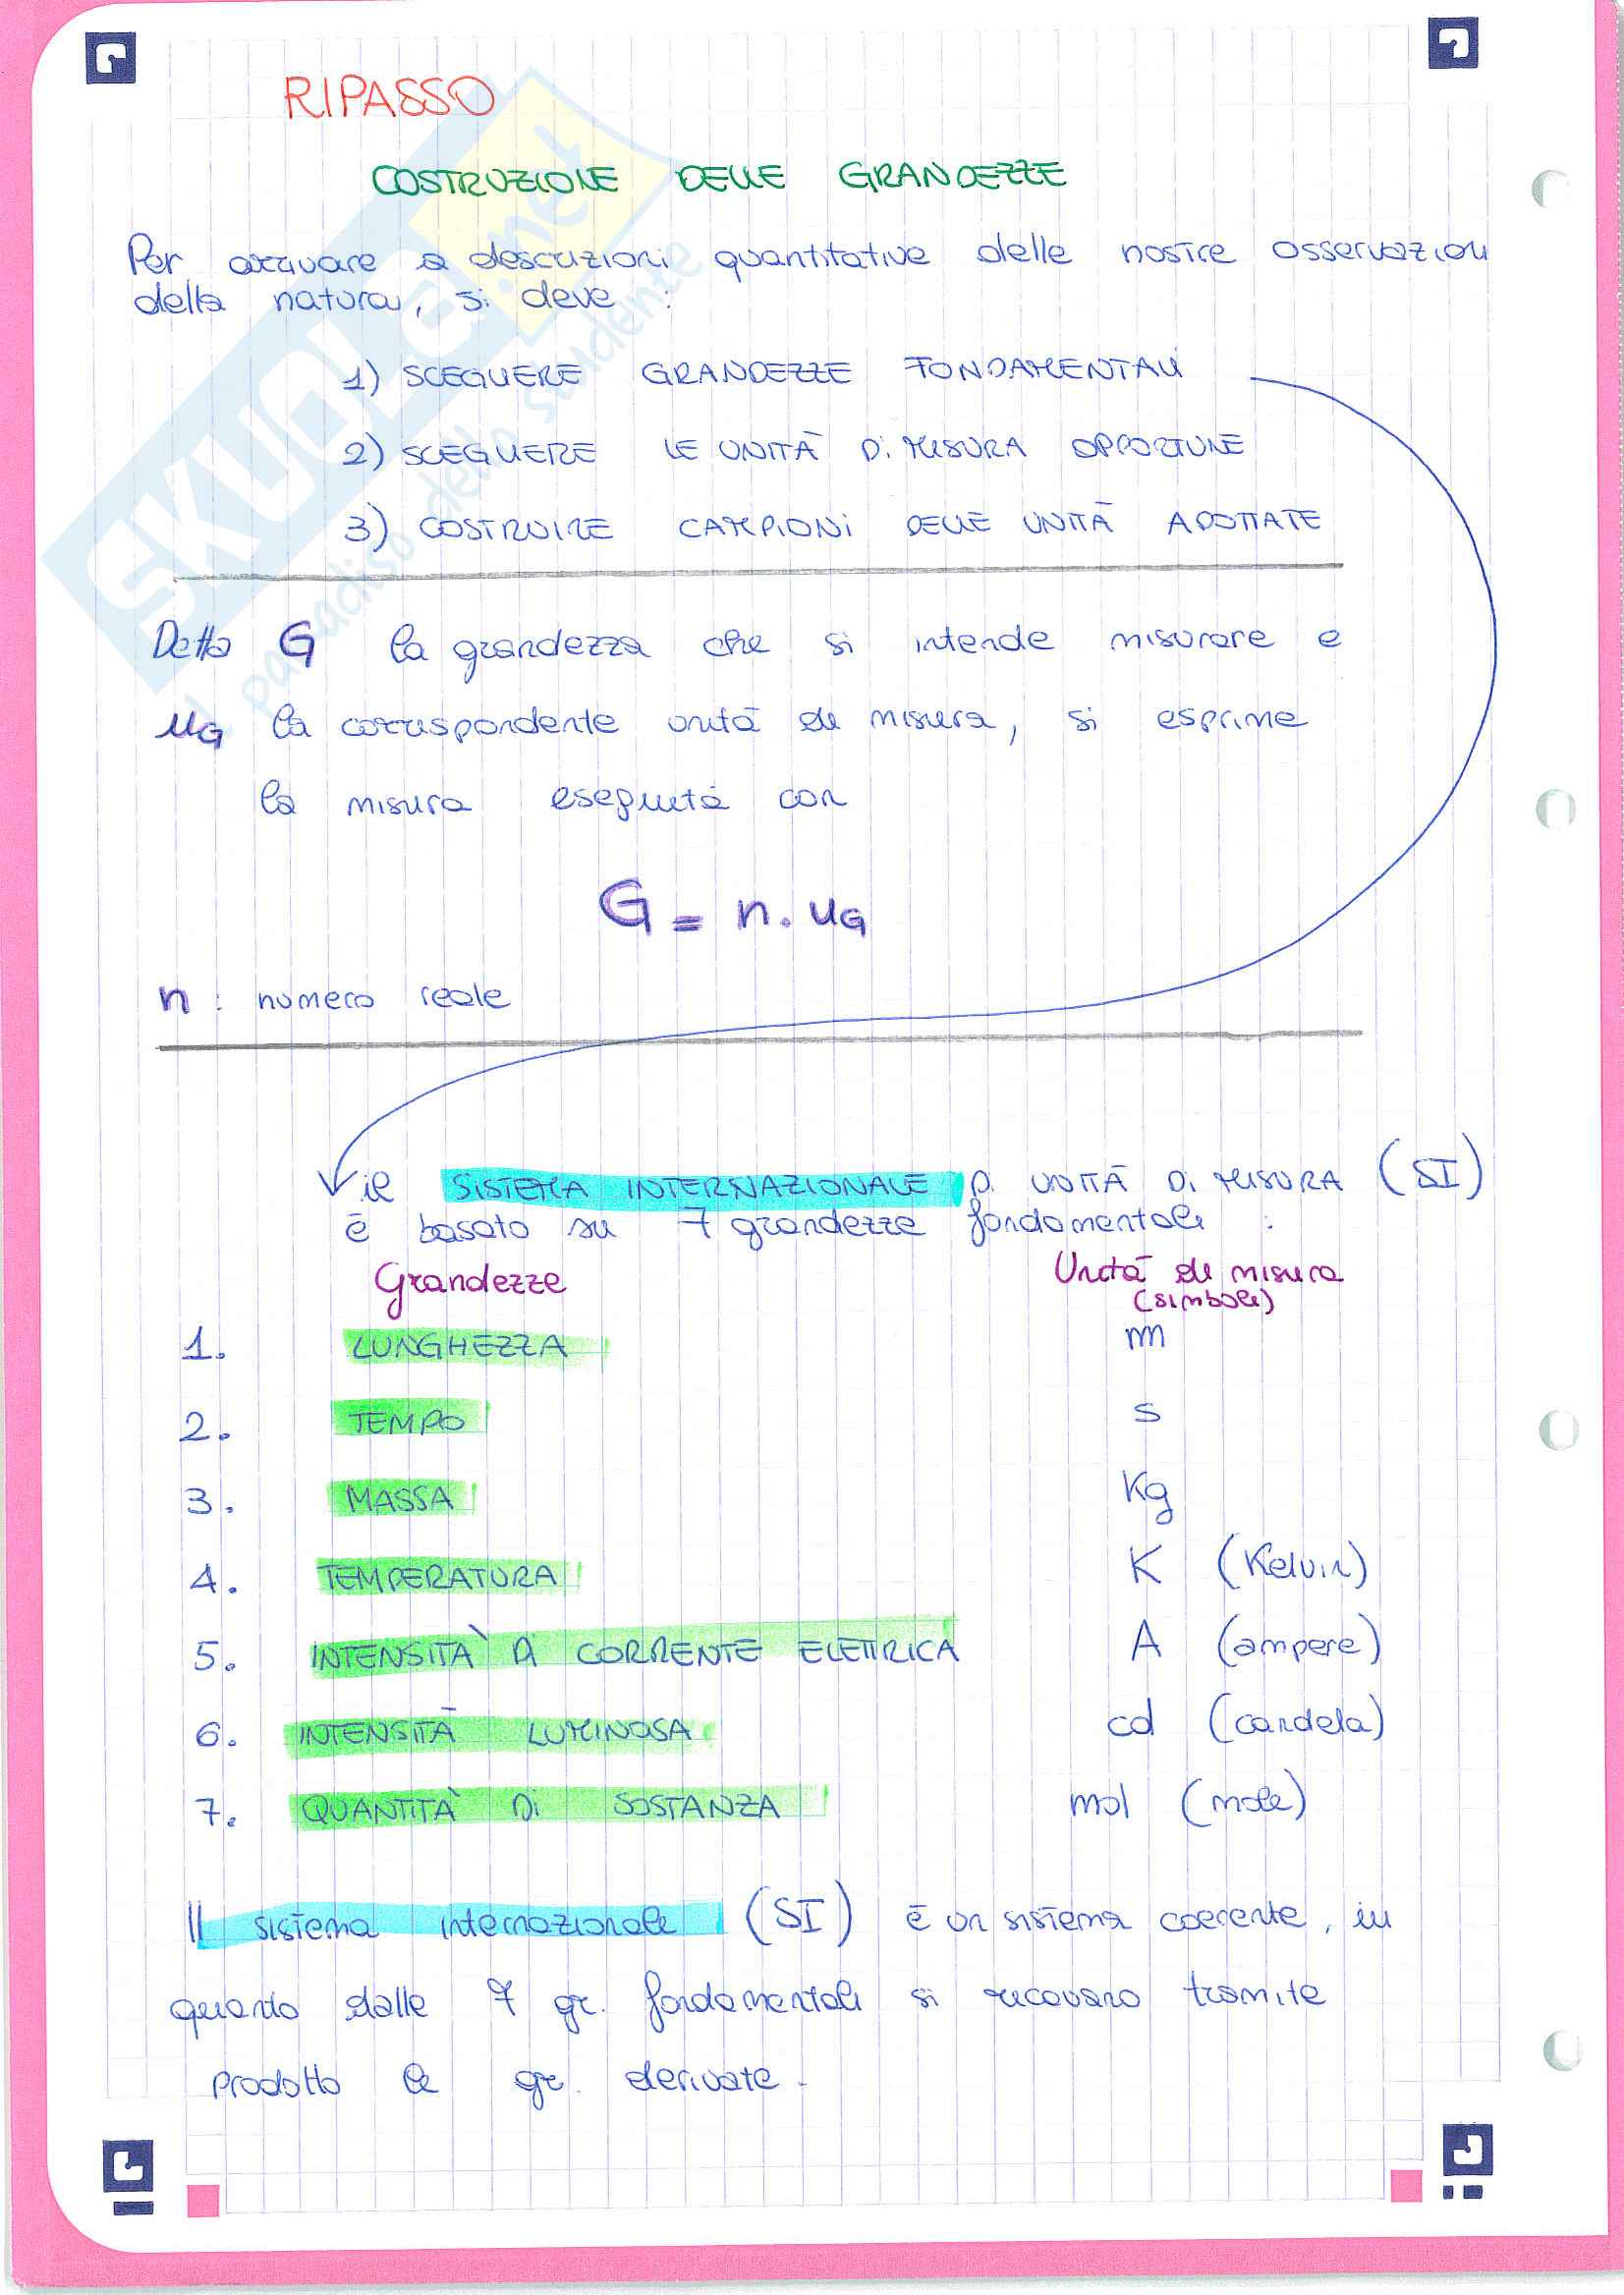 RIPASSO
COSTRUZIONE DELLE GRANDEZZE
Per arrivare a descrizioni quantitative delle nostre osservazioni
della natura, si deve :
1) SCEGLIERE GRANDEZZE FONDAMENTALI
2) SCEGLIERE LE UNITÀ DI MISURA OPPORTUNE
3) COSTRUIRE CAMPIONI DELLE UNITÀ ADOTTATE
Detta G la grandezza che si intende misurare e
uG la corrispondente unità di misura, si esprime
la misura eseguita con
G = n. uG
n : numero reale
il SISTEMA INTERNAZIONALE DI UNITÀ DI MISURA (SI)
è basato su 7 grandezze fondamentali :
Grandezze Unità di misura
(simboli)
1. LUNGHEZZA m
2. TEMPO s
3. MASSA Kg
4. TEMPERATURA K (Kelvin)
5. INTENSITÀ DI CORRENTE ELETTRICA A (ampere)
6. INTENSITÀ LUMINOSA cd (candela)
7. QUANTITÀ DI SOSTANZA mol (mole)
Il sistema internazionale (SI) è un sistema coerente, in
quanto dalle 7 gr. fondamentali si ricavano tramite
prodotto le gr. derivate.
SKUOLA.net
il paradiso dello studente